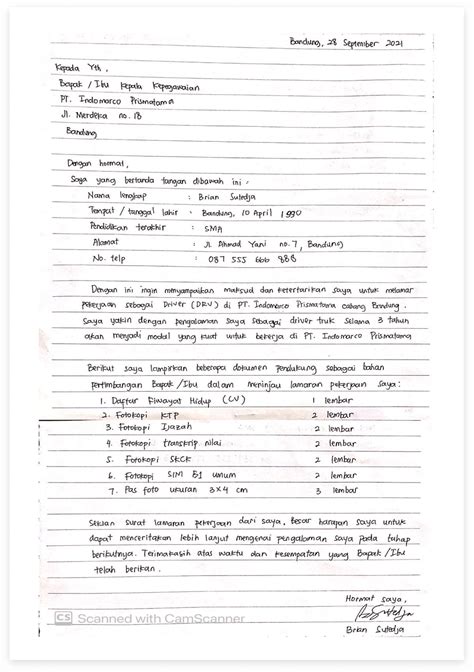 Bandung, 28 September 2021
Kepada Yth,
Bapak / Ibu Kepala Kepegawaian
PT. Indomarco Prismatama
Jl. Merdeka no. 18
Bandung
Dengan hormat,
Saya yang bertanda tangan dibawah ini :
Nama lengkap : Brian Sutedja
Tempat / tanggal lahir : Bandung, 10 April 1990
Pendidikan terakhir : SMA
Alamat : Jl. Ahmad Yani no. 7, Bandung
No. telp : 087 555 666 888
Dengan ini ingin menyampaikan maksud dan ketertarikan saya untuk melamar
pekerjaan sebagai Driver (DRV) di PT. Indomarco Prismatama cabang Bandung.
Saya yakin dengan pengalaman saya sebagai driver truk selama 3 tahun
akan menjadi modal yang kuat untuk bekerja di PT. Indomarco Prismatama
Berikut saya lampirkan beberapa dokumen pendukung sebagai bahan
pertimbangan Bapak / Ibu dalam meninjau lamaran pekerjaan saya:
1. Daftar Riwayat Hidup (CV) 1 lembar
2. Fotokopi KTP 2 lembar
3. Fotokopi Ijazah 2 lembar
4. Fotokopi transkrip nilai 2 lembar
5. Fotokopi SKCK 2 lembar
6. Fotokopi SIM B1 umum 2 lembar
7. Pas foto ukuran 3x4 cm 3 lembar
Sekian surat lamaran pekerjaan dari saya, besar harapan saya untuk
dapat menceritakan lebih lanjut mengenai pengalaman saya pada tahap
berikutnya. Terimakasih atas waktu dan kesempatan yang Bapak / Ibu
telah berikan.
Hormat saya,
BSutedja
Brian Sutedja
CS Scanned with CamScanner